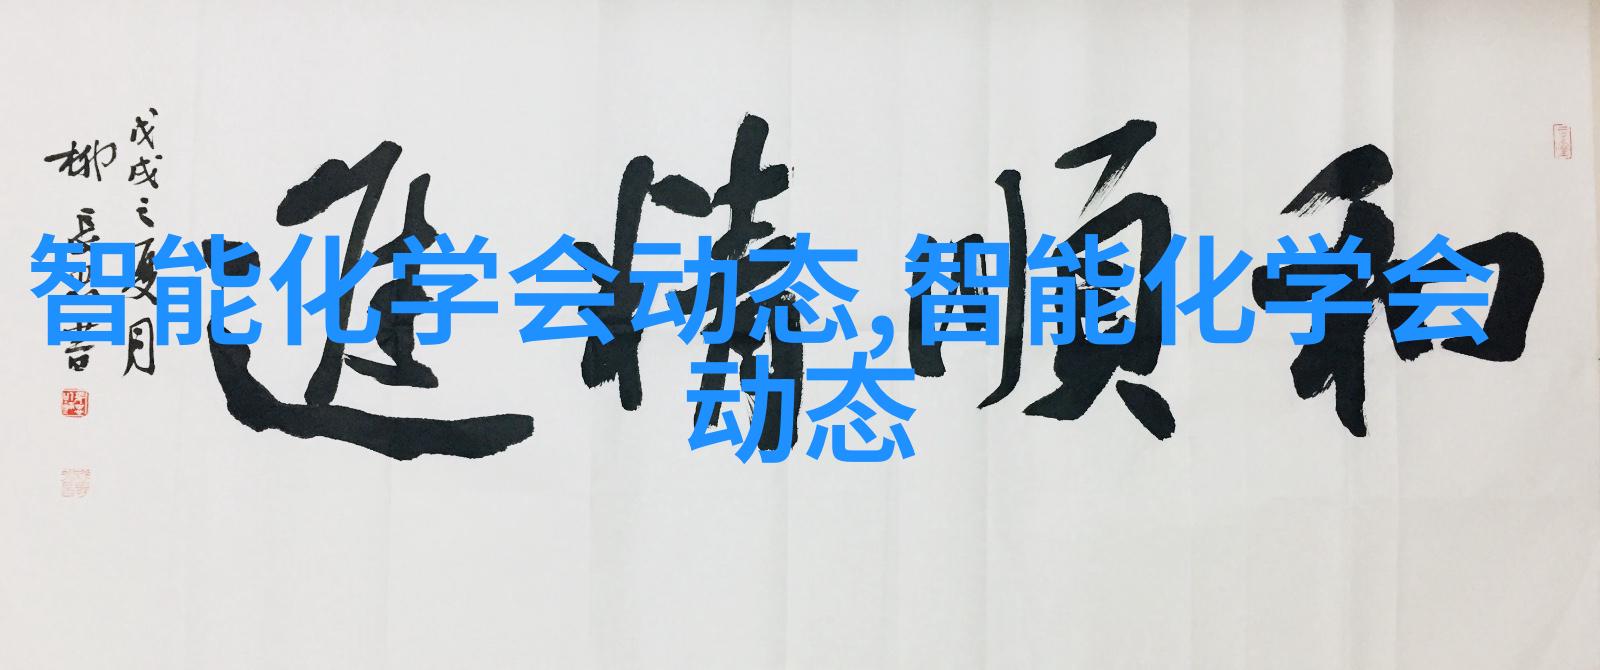 智能化学会动态,智能化学会
动态
和順進
戊戌之夏月
柳長